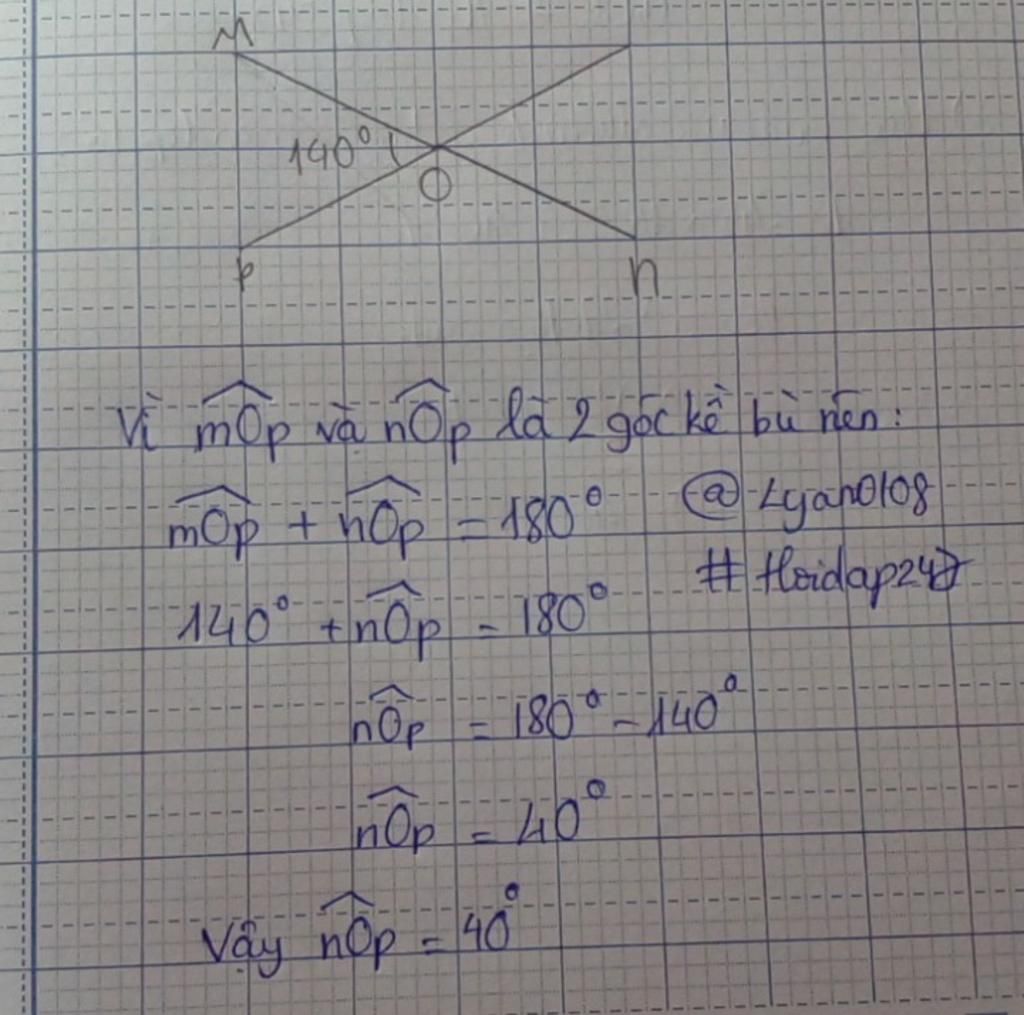 M
140°
O
p n
Vì mOp và nOp là 2 góc kề bù nên:
mOp + nOp = 180° @Lyan0108
140° + nOp = 180° #Hoidap247
nOp = 180° - 140°
nOp = 40°
Vậy nOp = 40°